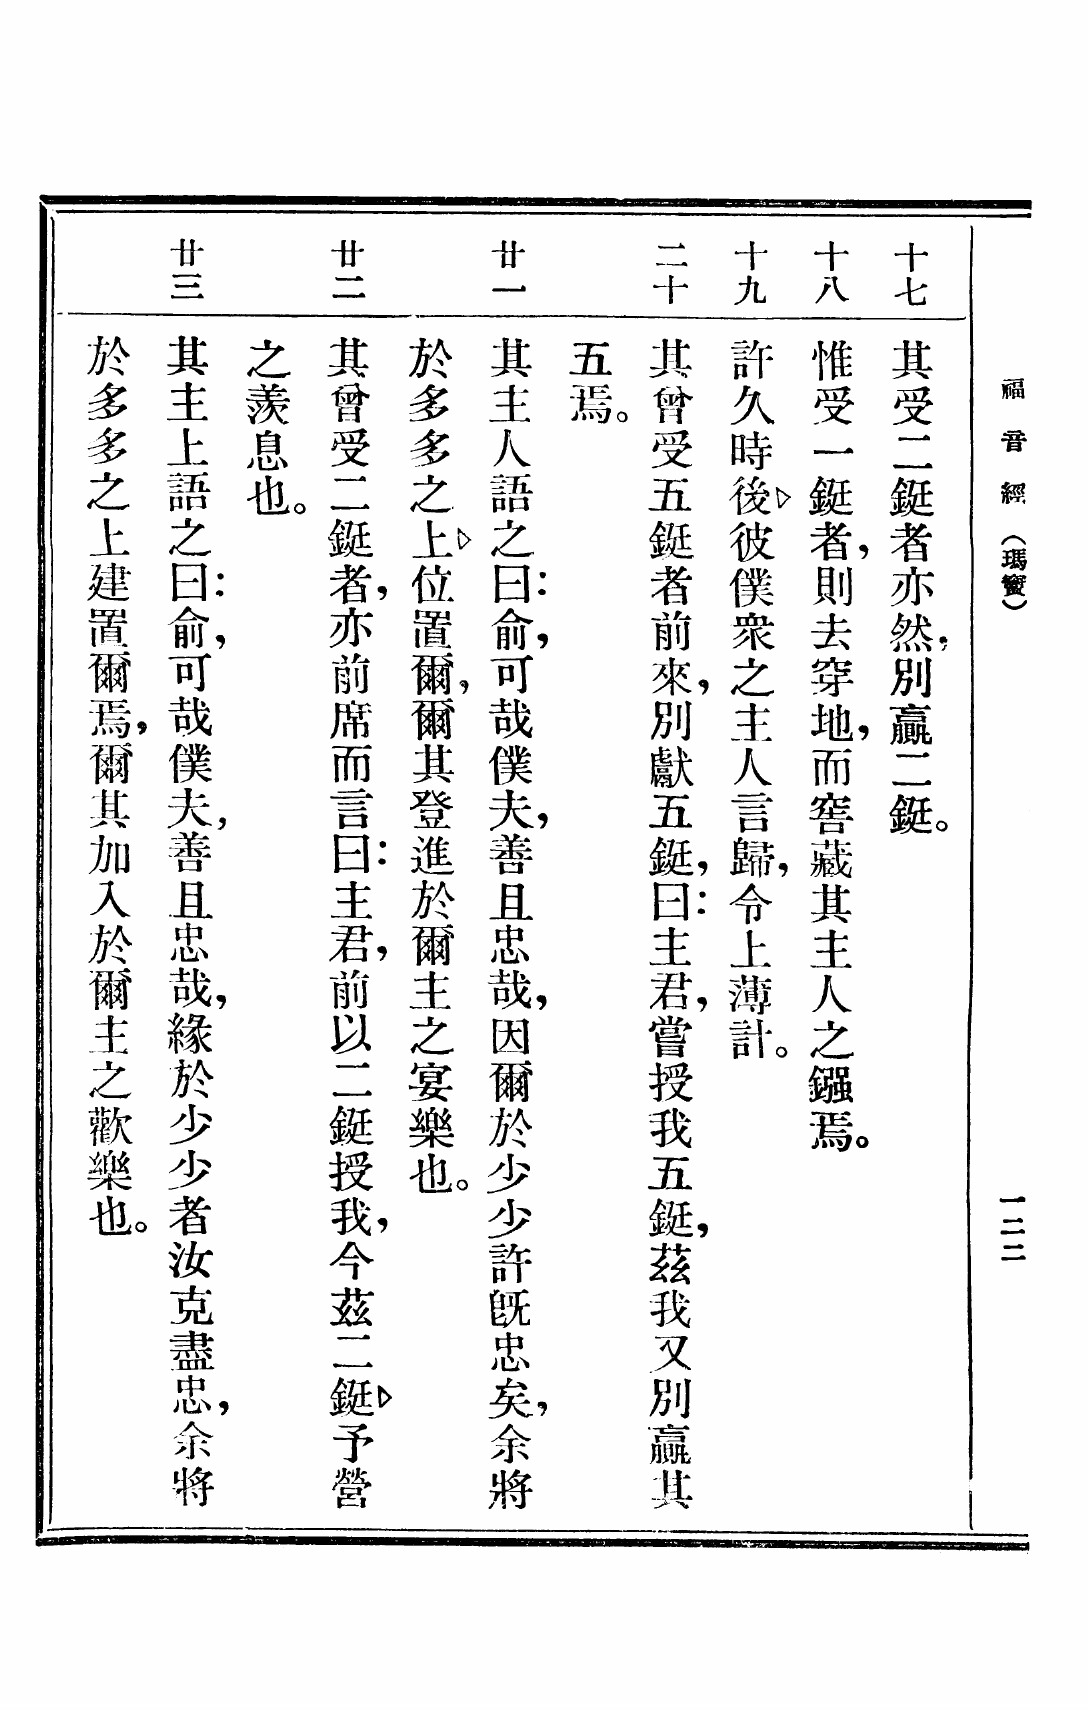 福音經（瑪竇）
一二二
十七
其受二鋌者亦然，別贏二鋌。
十八
惟受一鋌者，則去穿地，而窖藏其主人之鏹焉。
十九
許久時後▷彼僕衆之主人言歸，令上薄計。
二十
其曾受五鋌者前來，別獻五鋌，曰：主君，嘗授我五鋌，茲我又別贏其
五焉。
廿一
其主人語之曰：俞，可哉僕夫，善且忠哉，因爾於少少許旣忠矣，余將
於多多之上▷位置爾，爾其登進於爾主之宴樂也。
廿二
其曾受二鋌者，亦前席而言曰：主君，前以二鋌授我，今茲二鋌▷予營
之羨息也。
廿三
其主上語之曰：俞，可哉僕夫，善且忠哉，緣於少少者汝克盡忠，余將
於多多之上建置爾焉，爾其加入於爾主之歡樂也。